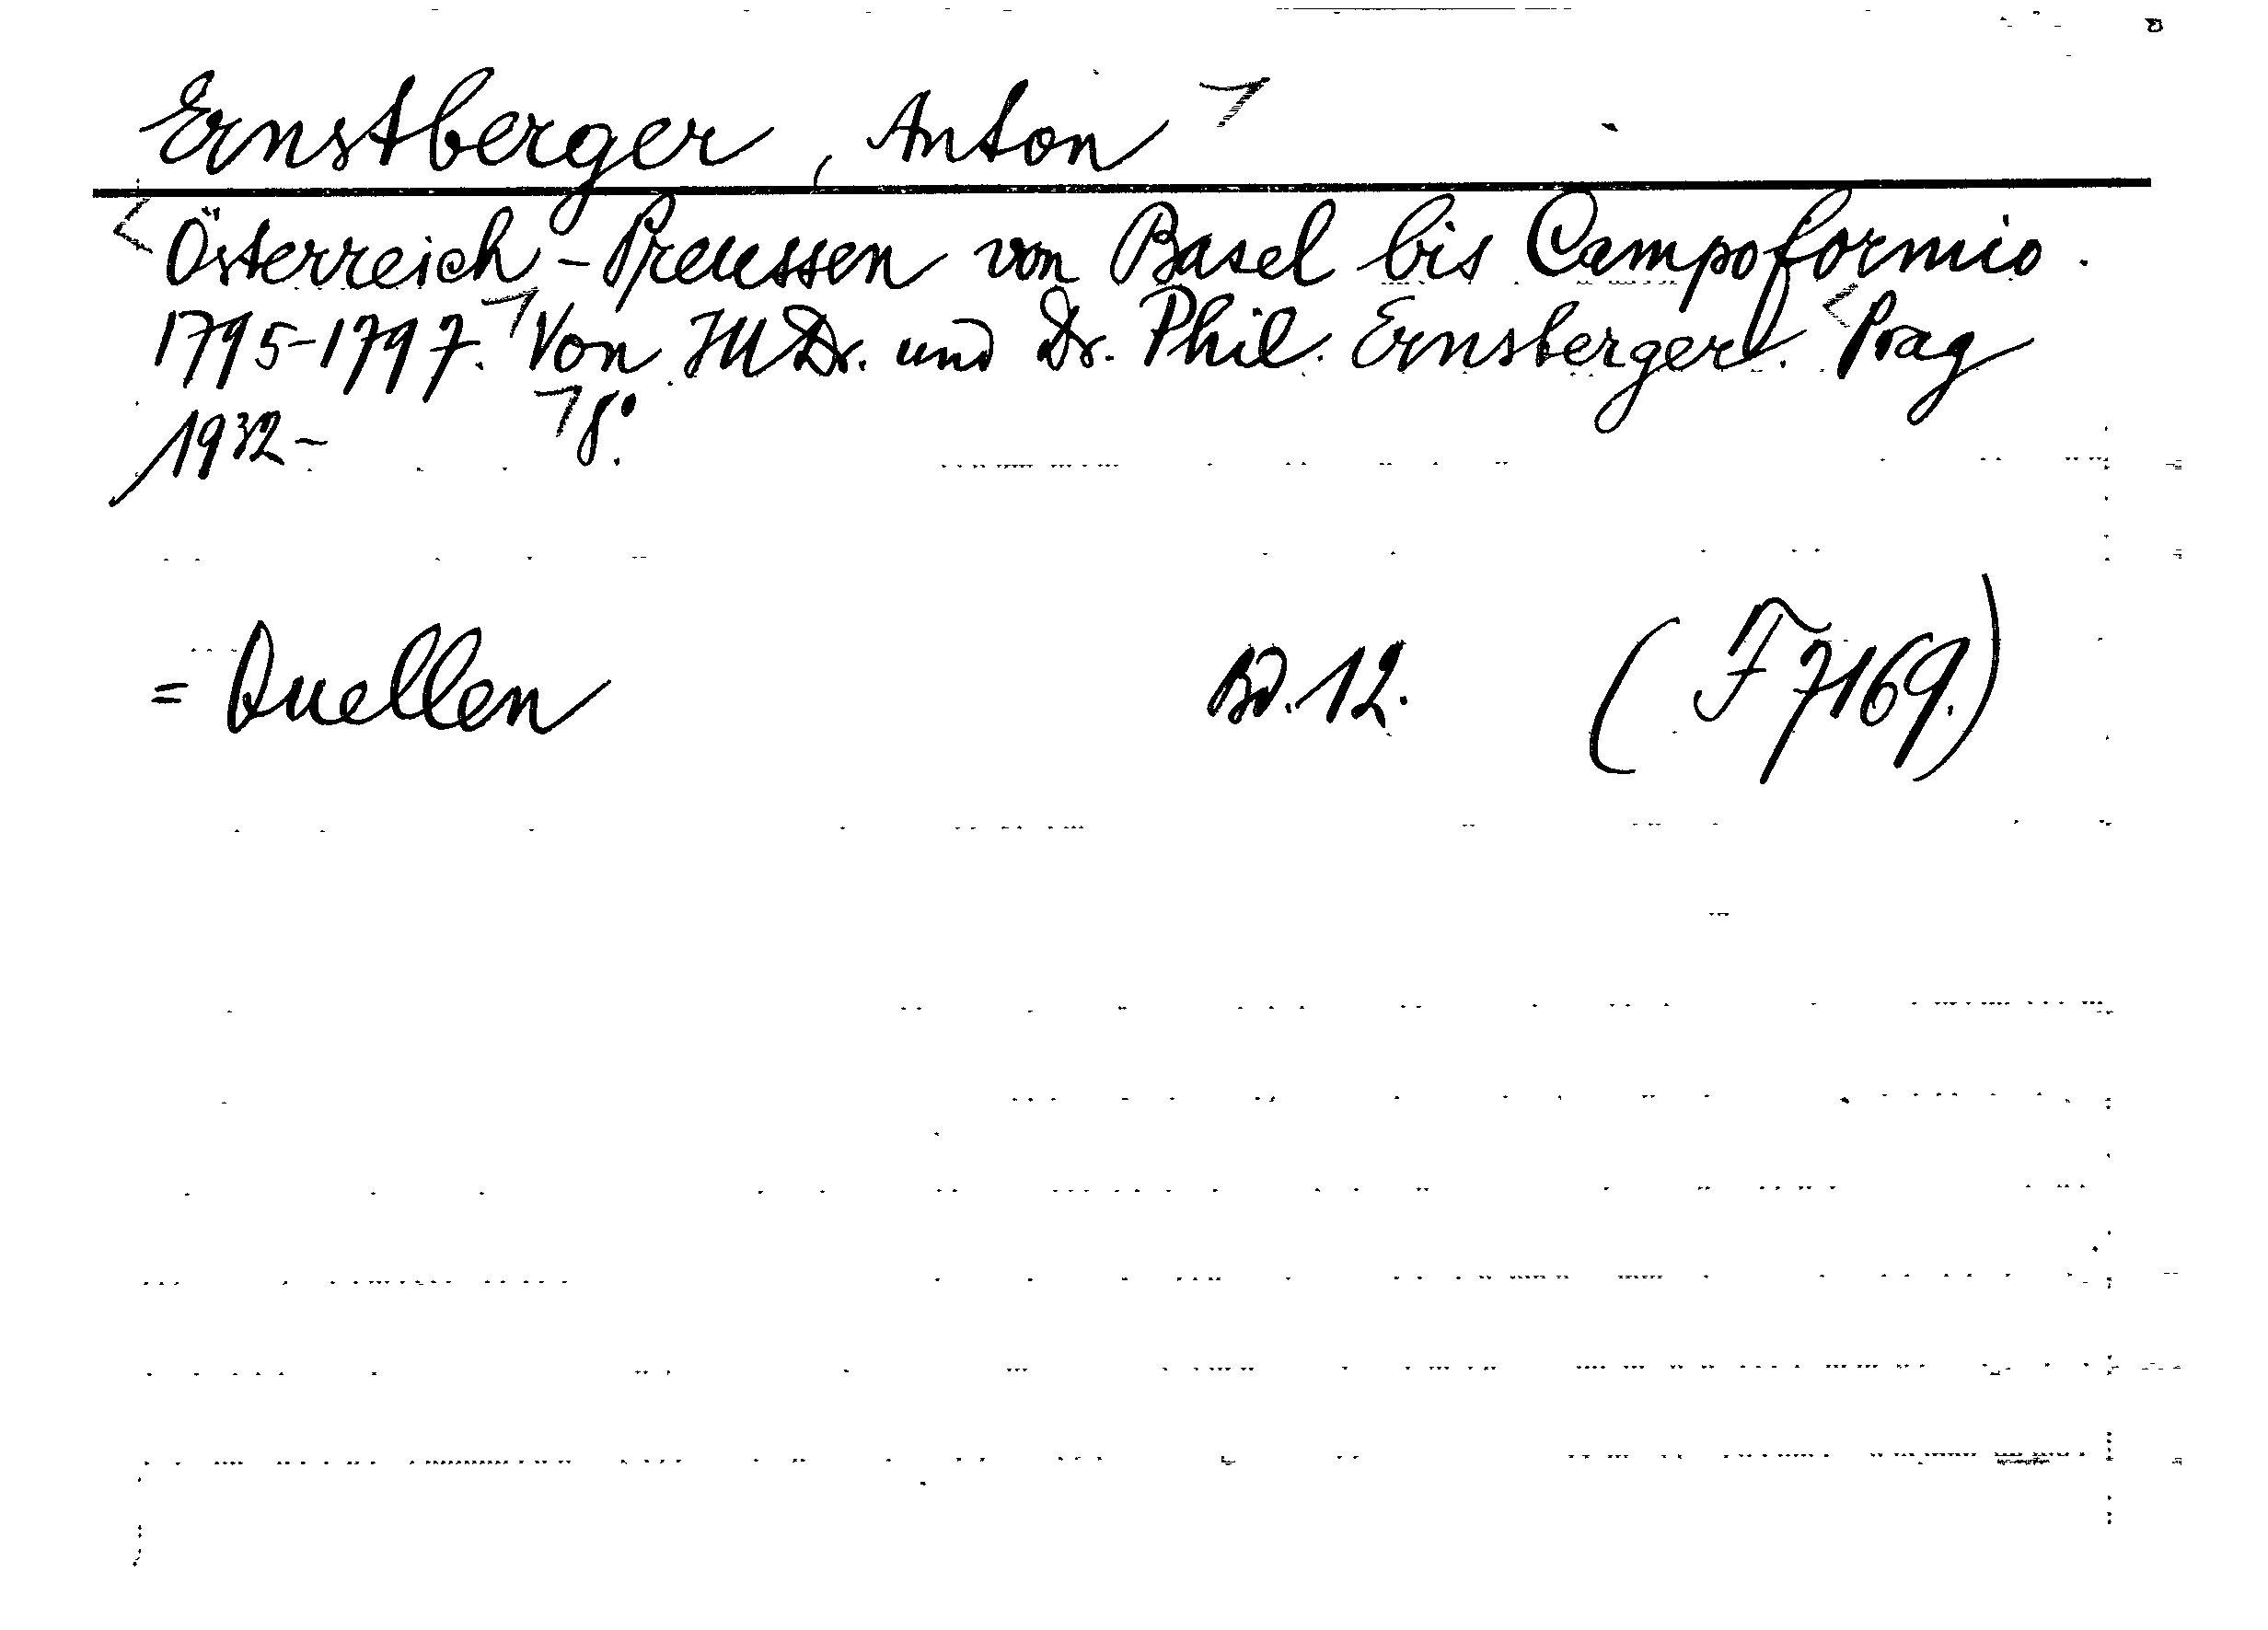 Ernstberger, Anton
Österreich-Preussen von Basel bis Campoformio.
1795-1797. Von JUDr. und Dr. Phil. Ernsberger. Prag
1932- 8°.
= Quellen Bd. 12. (F 7169.)